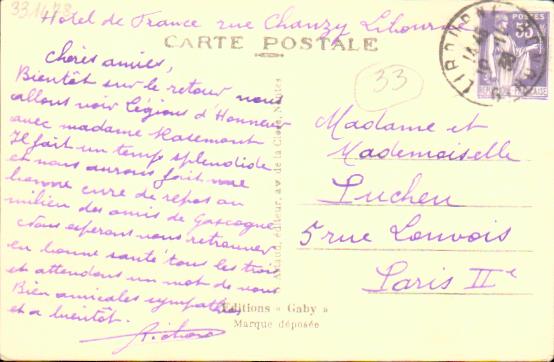 331478
Hôtel de France rue Chanzy Libourne
CARTE POSTALE
Chères amies,
Bientôt sur le retour nous
allons voir Légions d'Honneur
avec madame Rasemont
Il fait un temps splendide
et nous aurons fait une
bonne cure de repos au
milieu des amis de Gascogne
Nous espérons nous retrouver
en bonne santé tous les trois
et attendons un mot de vous
Bien amicales sympathies
et à bientôt.
Artaud, éditeur, av. de la Close, Nantes
Editions « Gaby »
Marque déposée
33
LIBOURNE
POSTES
55
Madame et
Mademoiselle
Lucheu
5 rue Louvois
Paris IIe